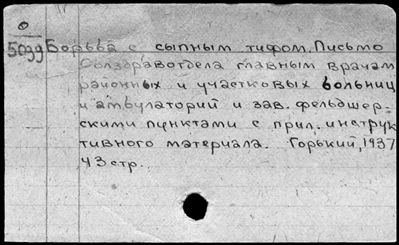 0
5099 Борьба с сыпным тифом. Письмо
Облздравотдела главным врачам
районных и участковых больниц
и амбулаторий и зав. фельдшер-
скими пунктами с прил. инструк
тивного материала. Горький, 1937
43 стр.